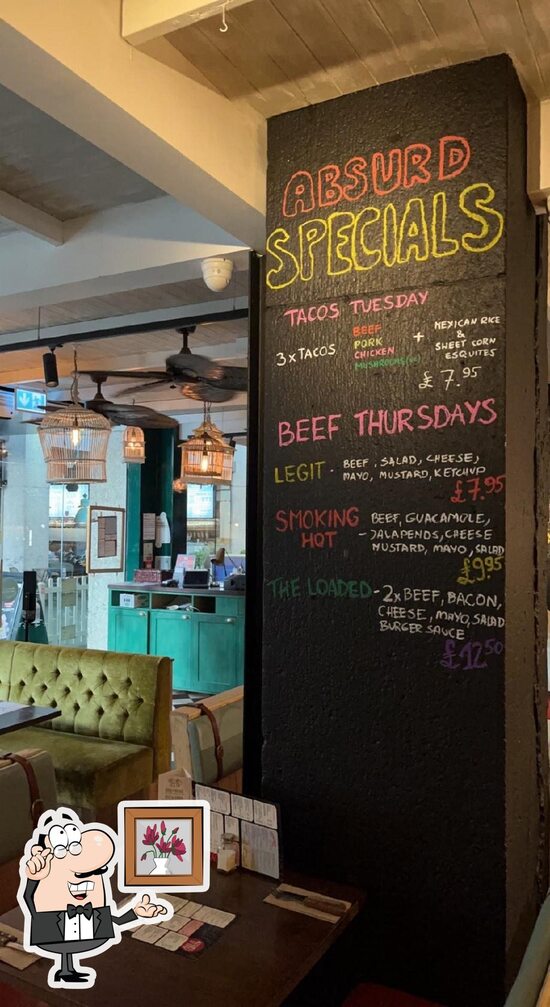 ABSURD
SPECIALS
TACOS TUESDAY
3 x TACOS
BEEF
PORK
CHICKEN
MUSHROOMS
+
MEXICAN RICE
&
SWEET CORN
ESQUITES
£ 7.95
BEEF THURSDAYS
LEGIT - BEEF, SALAD, CHEESE,
MAYO, MUSTARD, KETCHUP
£7.95
SMOKING
HOT
BEEF, GUACAMOLE,
- JALAPENOS, CHEESE
MUSTARD, MAYO, SALAD
£9.95
THE LOADED - 2x BEEF, BACON,
CHEESE, MAYO, SALAD
BURGER SAUCE
£12.50